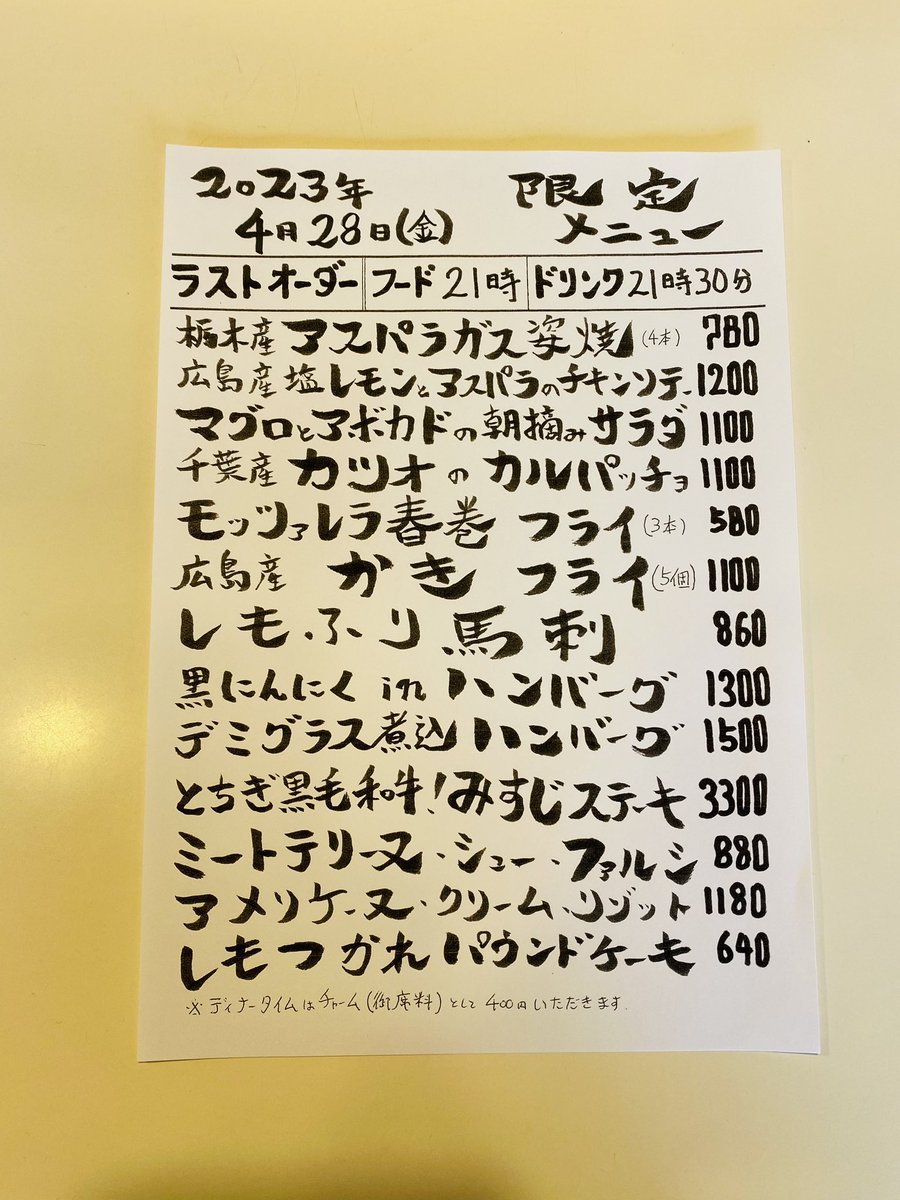 2023年
4月28日(金)
限定
メニュー
ラストオーダー フード21時 ドリンク21時30分
栃木産アスパラガス姿焼(4本) 780
広島産塩レモンとアスパラのチキンソテー 1200
マグロとアボカドの朝摘みサラダ 1100
千葉産カツオのカルパッチョ 1100
モッツァレラ春巻フライ(3本) 580
広島産かきフライ(5個) 1100
しもふり馬刺 860
黒にんにくinハンバーグ 1300
デミグラス煮込ハンバーグ 1500
とちぎ黒毛和牛!みすじステーキ 3300
ミートテリーヌ・シュー・ファルシ 880
アメリケーヌ・クリーム・リゾット 1180
しもつかれパウンドケーキ 640
※ディナータイムはチャーム(御席料)として400円いただきます.